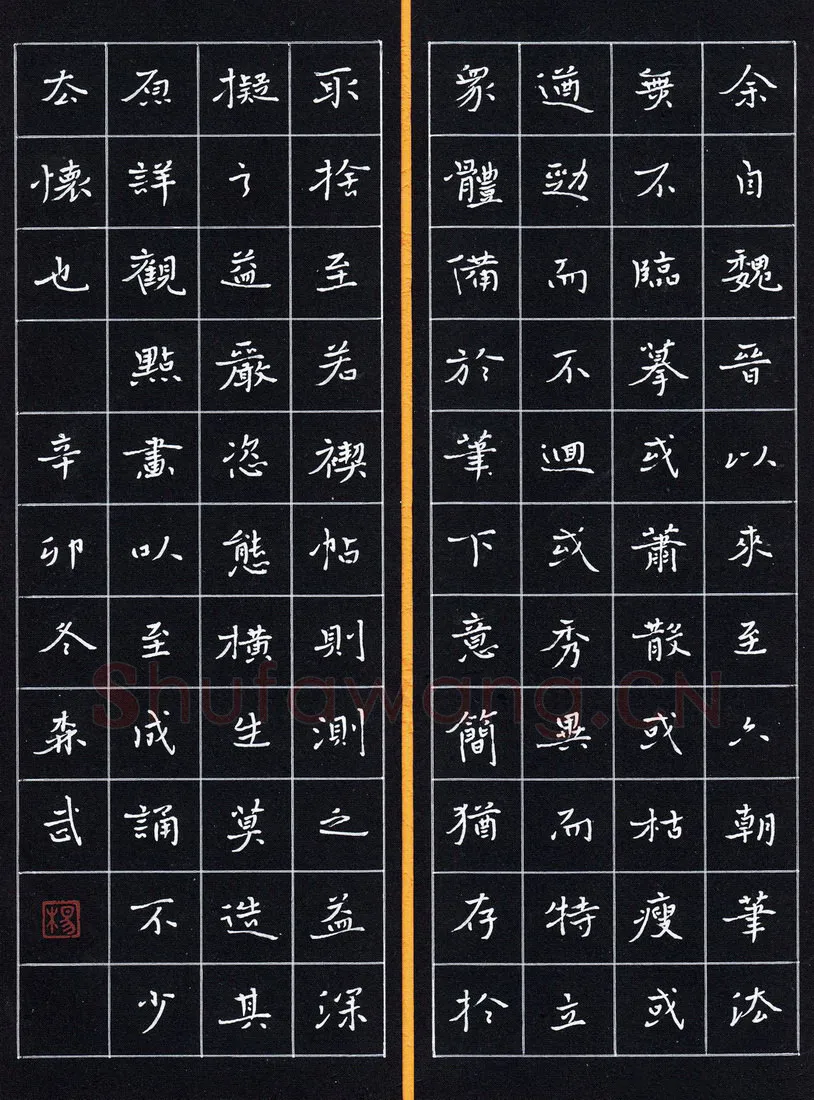 余自魏晉以來至六朝筆法
無不臨摹或蕭散或枯瘦或
遒勁而不迴或秀異而特立
衆體備於筆下意簡猶存扵
取捨至若禊帖則測之益深
擬之益嚴恣態橫生莫造其
原詳觀點畫以至成誦不少
去懷也 辛卯冬森武
楊
Shufawang.CN